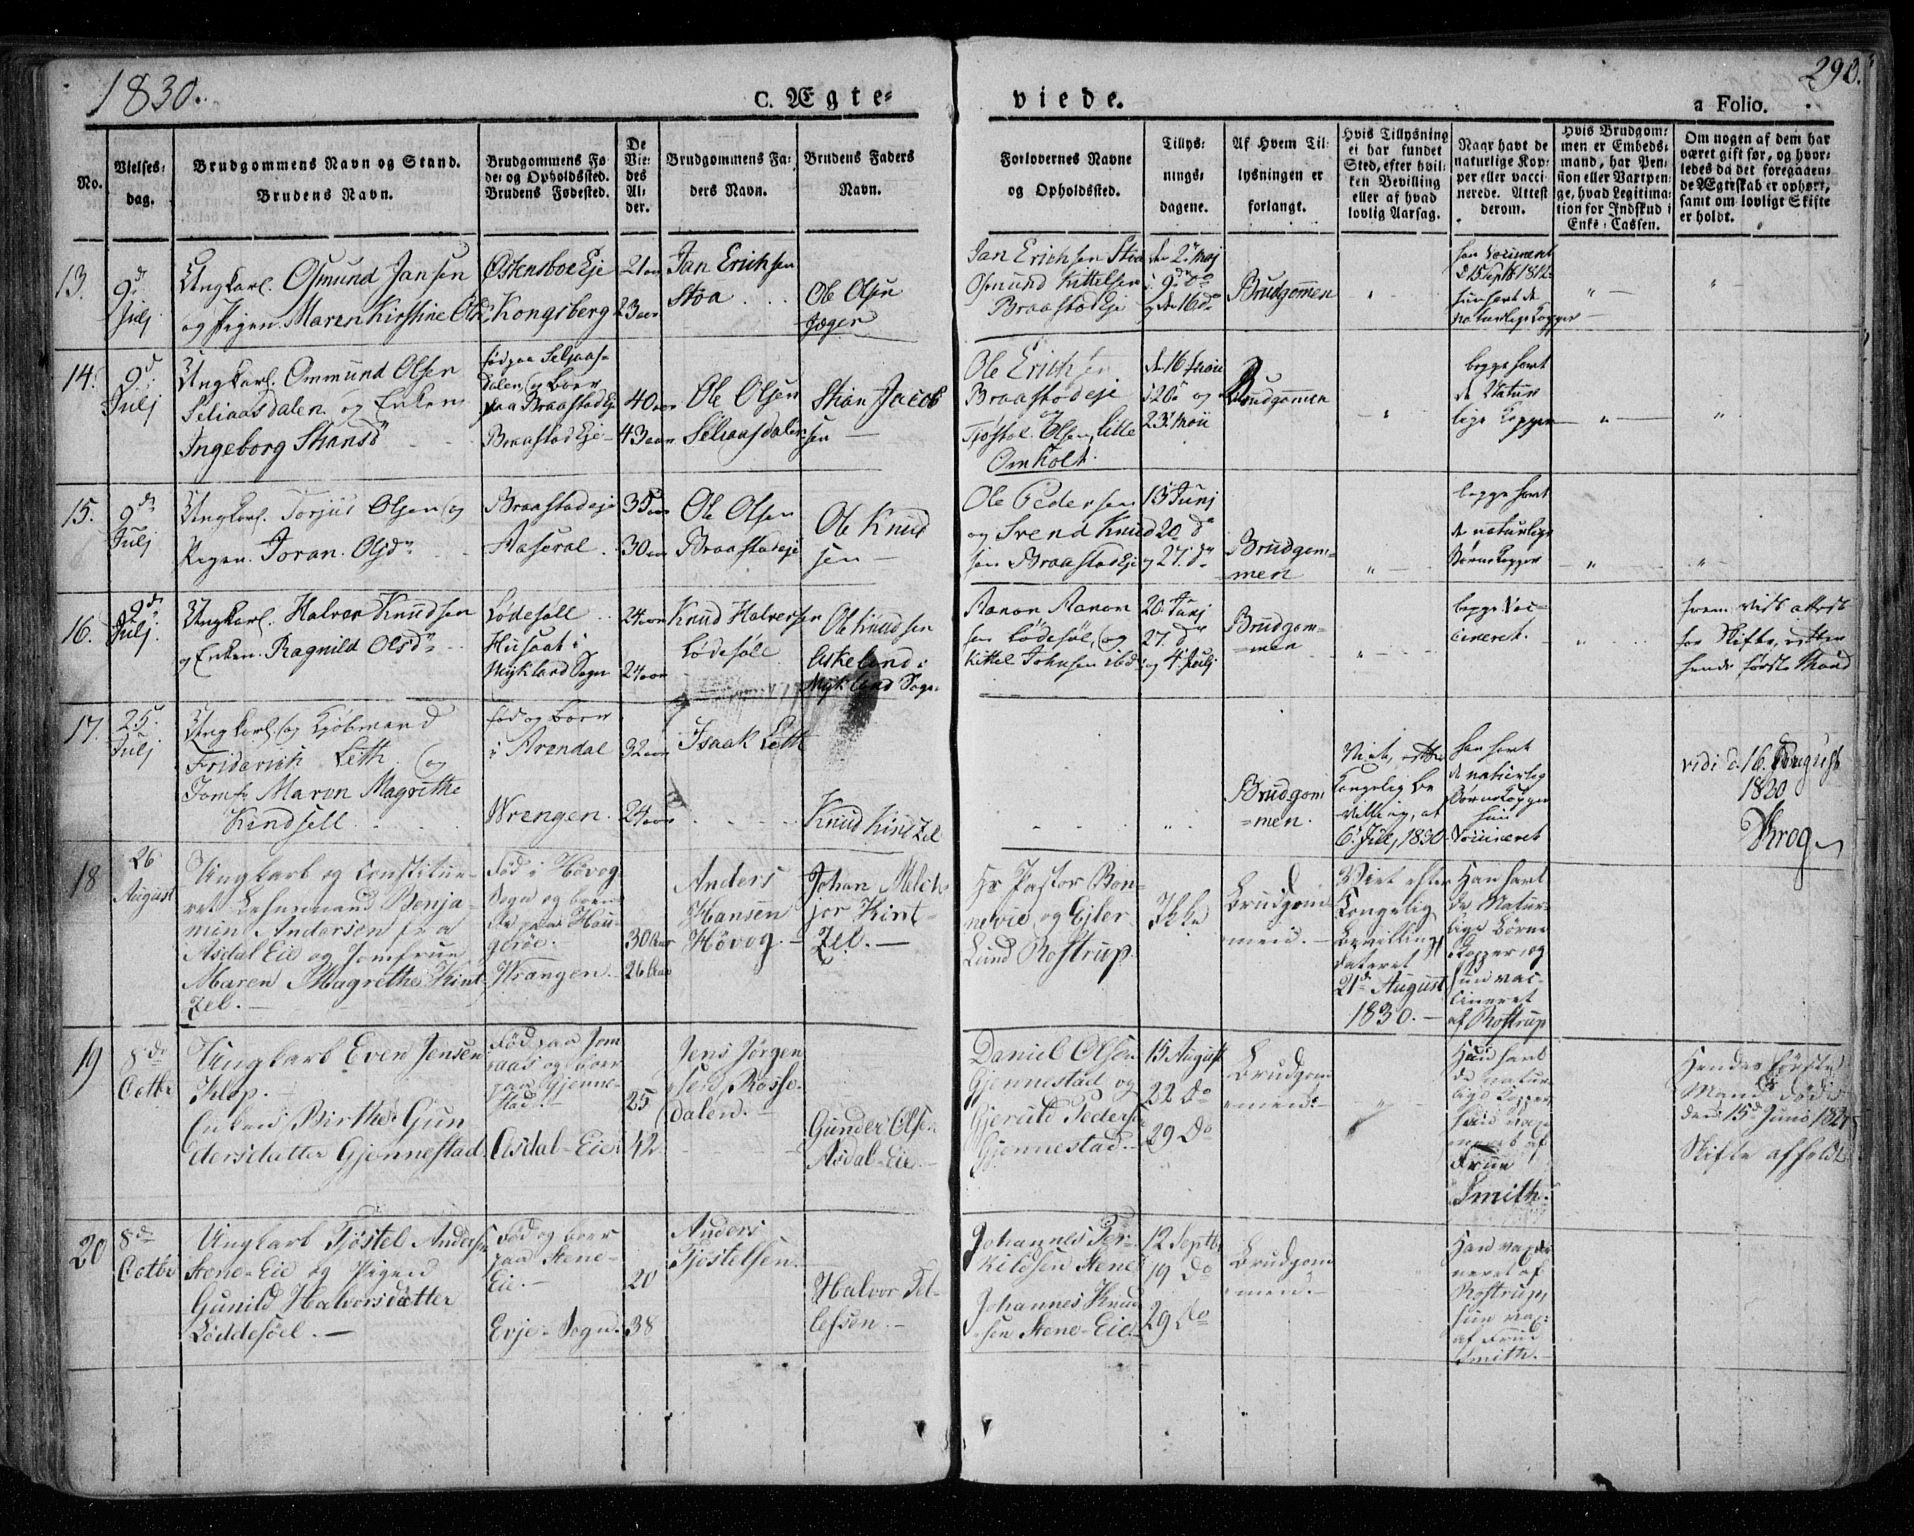 1830.
C. Ægte=
viede.
290.
a Folio.
No.
Vielses=
dag.
Brudgommens Navn og Stand.
Brudens Navn.
Brudgommens Fø
de= og Opholdssted.
Brudens Fødested.
De
Vie=
des
Al=
der.
Brudgommens Fa=
ders Navn.
Brudens Faders
Navn.
Forlovernes Navne
og Opholdssted.
Tillys=
nings=
dagene.
Af Hvem Til=
lysningen er
forlangt.
Hvis Tillysning
ei har fundet
Sted, efter hvil=
ken Bevilling
eller af hvad
lovlig Aarsag.
Naar havt de
naturlige Kop=
per eller vacci=
nerede. Attest
derom.
Hvis Brudgom=
men er Embeds=
mand, har Pen=
sion eller Vartpen=
ge, hvad Legitima=
tion for Indskud i
Enke=Cassen.
Om nogen af dem har
været gift før, og hvor=
ledes da det foregaaen=
de Ægteskab er ophørt,
samt om lovligt Skifte
er holdt.
13.
9de
Julj
Ungkarl. Osmund Jansen
og Pigen. Maren Kirstine
Østensboe Eje
Kongsberg
21
23
Jan Erichsen
Stoa
Ole Olsen
Jæger
Jan Erichsen Stoa
Osmund Kittelsen
Braastad Eje
Brudgommen
naturlige Kopper
14.
9d
Julj
Ungkarl. Ommund Olsen
Seliaasdalen og Enken
Ingeborg
fød paa Seljaas=
dalen, og boer
paa Braastad Eje
Braastad Eje
40
43
Ole Olsen
Seliaasdalen
Stian Jacob
sen
Ole Erichsen
Braastadeje
Olsen Lille
Omholt.
Brudgommen
begge havt
de Natur
lige Kopper
15.
9de
Julj
Ungkarl. Torjus Olsen og
Pigen. Joran. Olsdr
Braastadeje
Aaseral.
35
30
Ole Olsen
Braastadeje
Ole Knud
sen
Ole Pedersen
og Svend Knud
sen Braastad Eje
13 Junj
20 do
og 27. do
Brudgom=
men
begge havt
de naturlige
Børnekopper
16.
9de
Julj.
Ungkarl. Halvor Knudsen
og Enken. Ragnild Olsdr
Lødesøll
Husaas i
Mykland Sogn
24
24
Knud Halvorsen
Lødesøll
Ole Knudsen
Askeland i
Mykland Sogn
Aanon Aanon
sen Lødesøl, og
Kittel Johnsen ibd
20 Junj
27 do
og 4 Julj
Brudgom=
=men
begge Vac=
cineret.
frem vist attest
for Skifte, efter
hendes første Mand
17.
25
Julj
Ungkarl. og Kjøbmand
Friderich Leth. og
Jomfr Maren Magrethe
Kindsell
fød og boer
i Arendal
Wrengen.
32
24
Isaak Leth
Knud Kint Zel
Brudgom
=men.
Viet, efter
Kongelig Be
villing, af
6 Juli, 1830
han havt
de naturlig
Børnekopper
hun
Vaccineret
vidi d. 16. August
1830
Krog
18
26
August
Ungkarl og Constitue=
ret Lehnsmand Benja=
min Andersen fra
Asdal Eie og Jomfrue
Maren Magrethe Kint
Zel.
Fød i Høvog
Sogn og boen
de paa Hau
gerøe.
Wrangen.
30 Aar
26 Aar
Anders
Hansen
Høvog.
Johan Melch
jor Kint=
Zel.
Hr Pastor Bon=
nevie og Ejler
Lund Rostrup.
Ikke
Brudgom
men.
Viet efter
Kongelig
Bevilling
dateret
21de August
1830.
Han havt
de Natur=
lige Børne
Kopper, og
hun vac=
cineret
af Rostrup
19
8de
Octbr
Ungkarl Even Jensen
Klep.
Enken Birthe Gun
dersdatter Gjennestad
Fød paa Jom
raas og boer
paa Gjenne=
stad.
Asdal=Eie
25
42
Jens Jørgen
sen Rosse=
dalen.
Gunder Olsen
Asdal=Eie
Daniel Olsen
Gjennestad og
Gjeruld Peders
Gjennestad.
15 August
22 Do
29 Do
Brudgom
men
Han havt
de natur
lige Kopper
hun vac
neret af
Frue
Smith.
Hendes første
Mand døde
den 15de Juni
Skifte affoldt
20
8de
Octbr
Ungkarl Tjøstel Anders
Stene=Eie og Pigen
Gunild Halvorsdatter
Løddesøel.
Fød og boer
paa Stene=
Eie.
Evje=Sogn.
20
38
Anders
Tjøstelsen.
Halvor Tel=
lefsen.
Johannes Ter=
kildsen Stene
Johannes Knud
sen Stene=Eie
12 Septbr
19 Do
29 Do
Brudgom
men.
Han vacci
neret af
Rostrup,
hun vac=
af Frue
Smith.